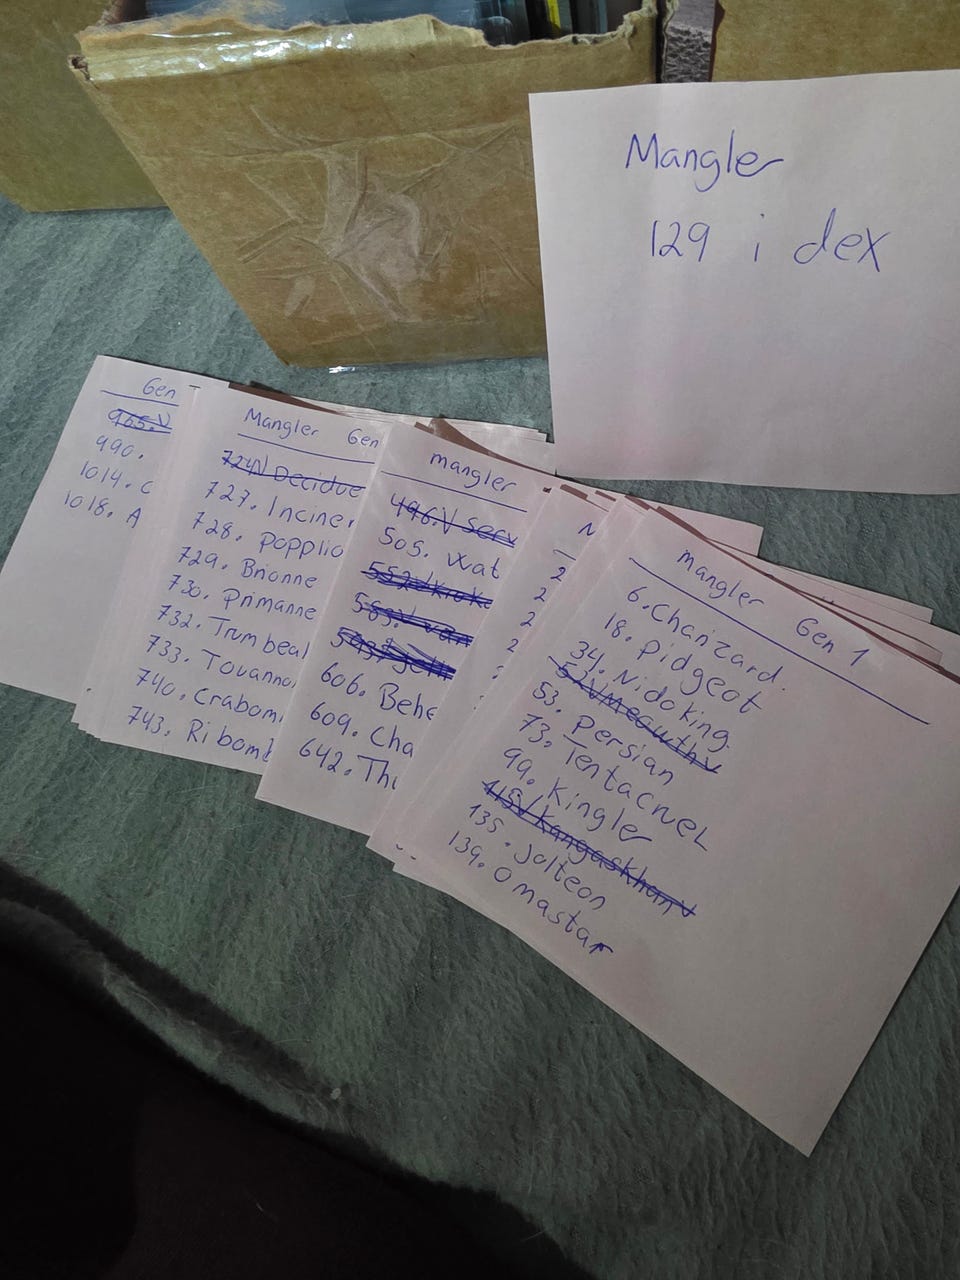 Mangler
129 i dex
Gen
965. V
990.
1014. C
1018. A
Mangler Gen
724V Decidue
727. Inciner
728. popplio
729. Brionne
730. primanne
732. Trumbeal
733. Touanno
740. Crabom
743. Ribomb
mangler
496. V Serv
505. Wat
606. Behe
609. Cha
642. Thu
mangler Gen 1
6. Charizard.
18. Pidgeot
34. Nidoking
52V Meowth V
53. Persian
73. Tentacruel
99. Kingler
115V Kangaskhan V
135. Jolteon
139. Omastar